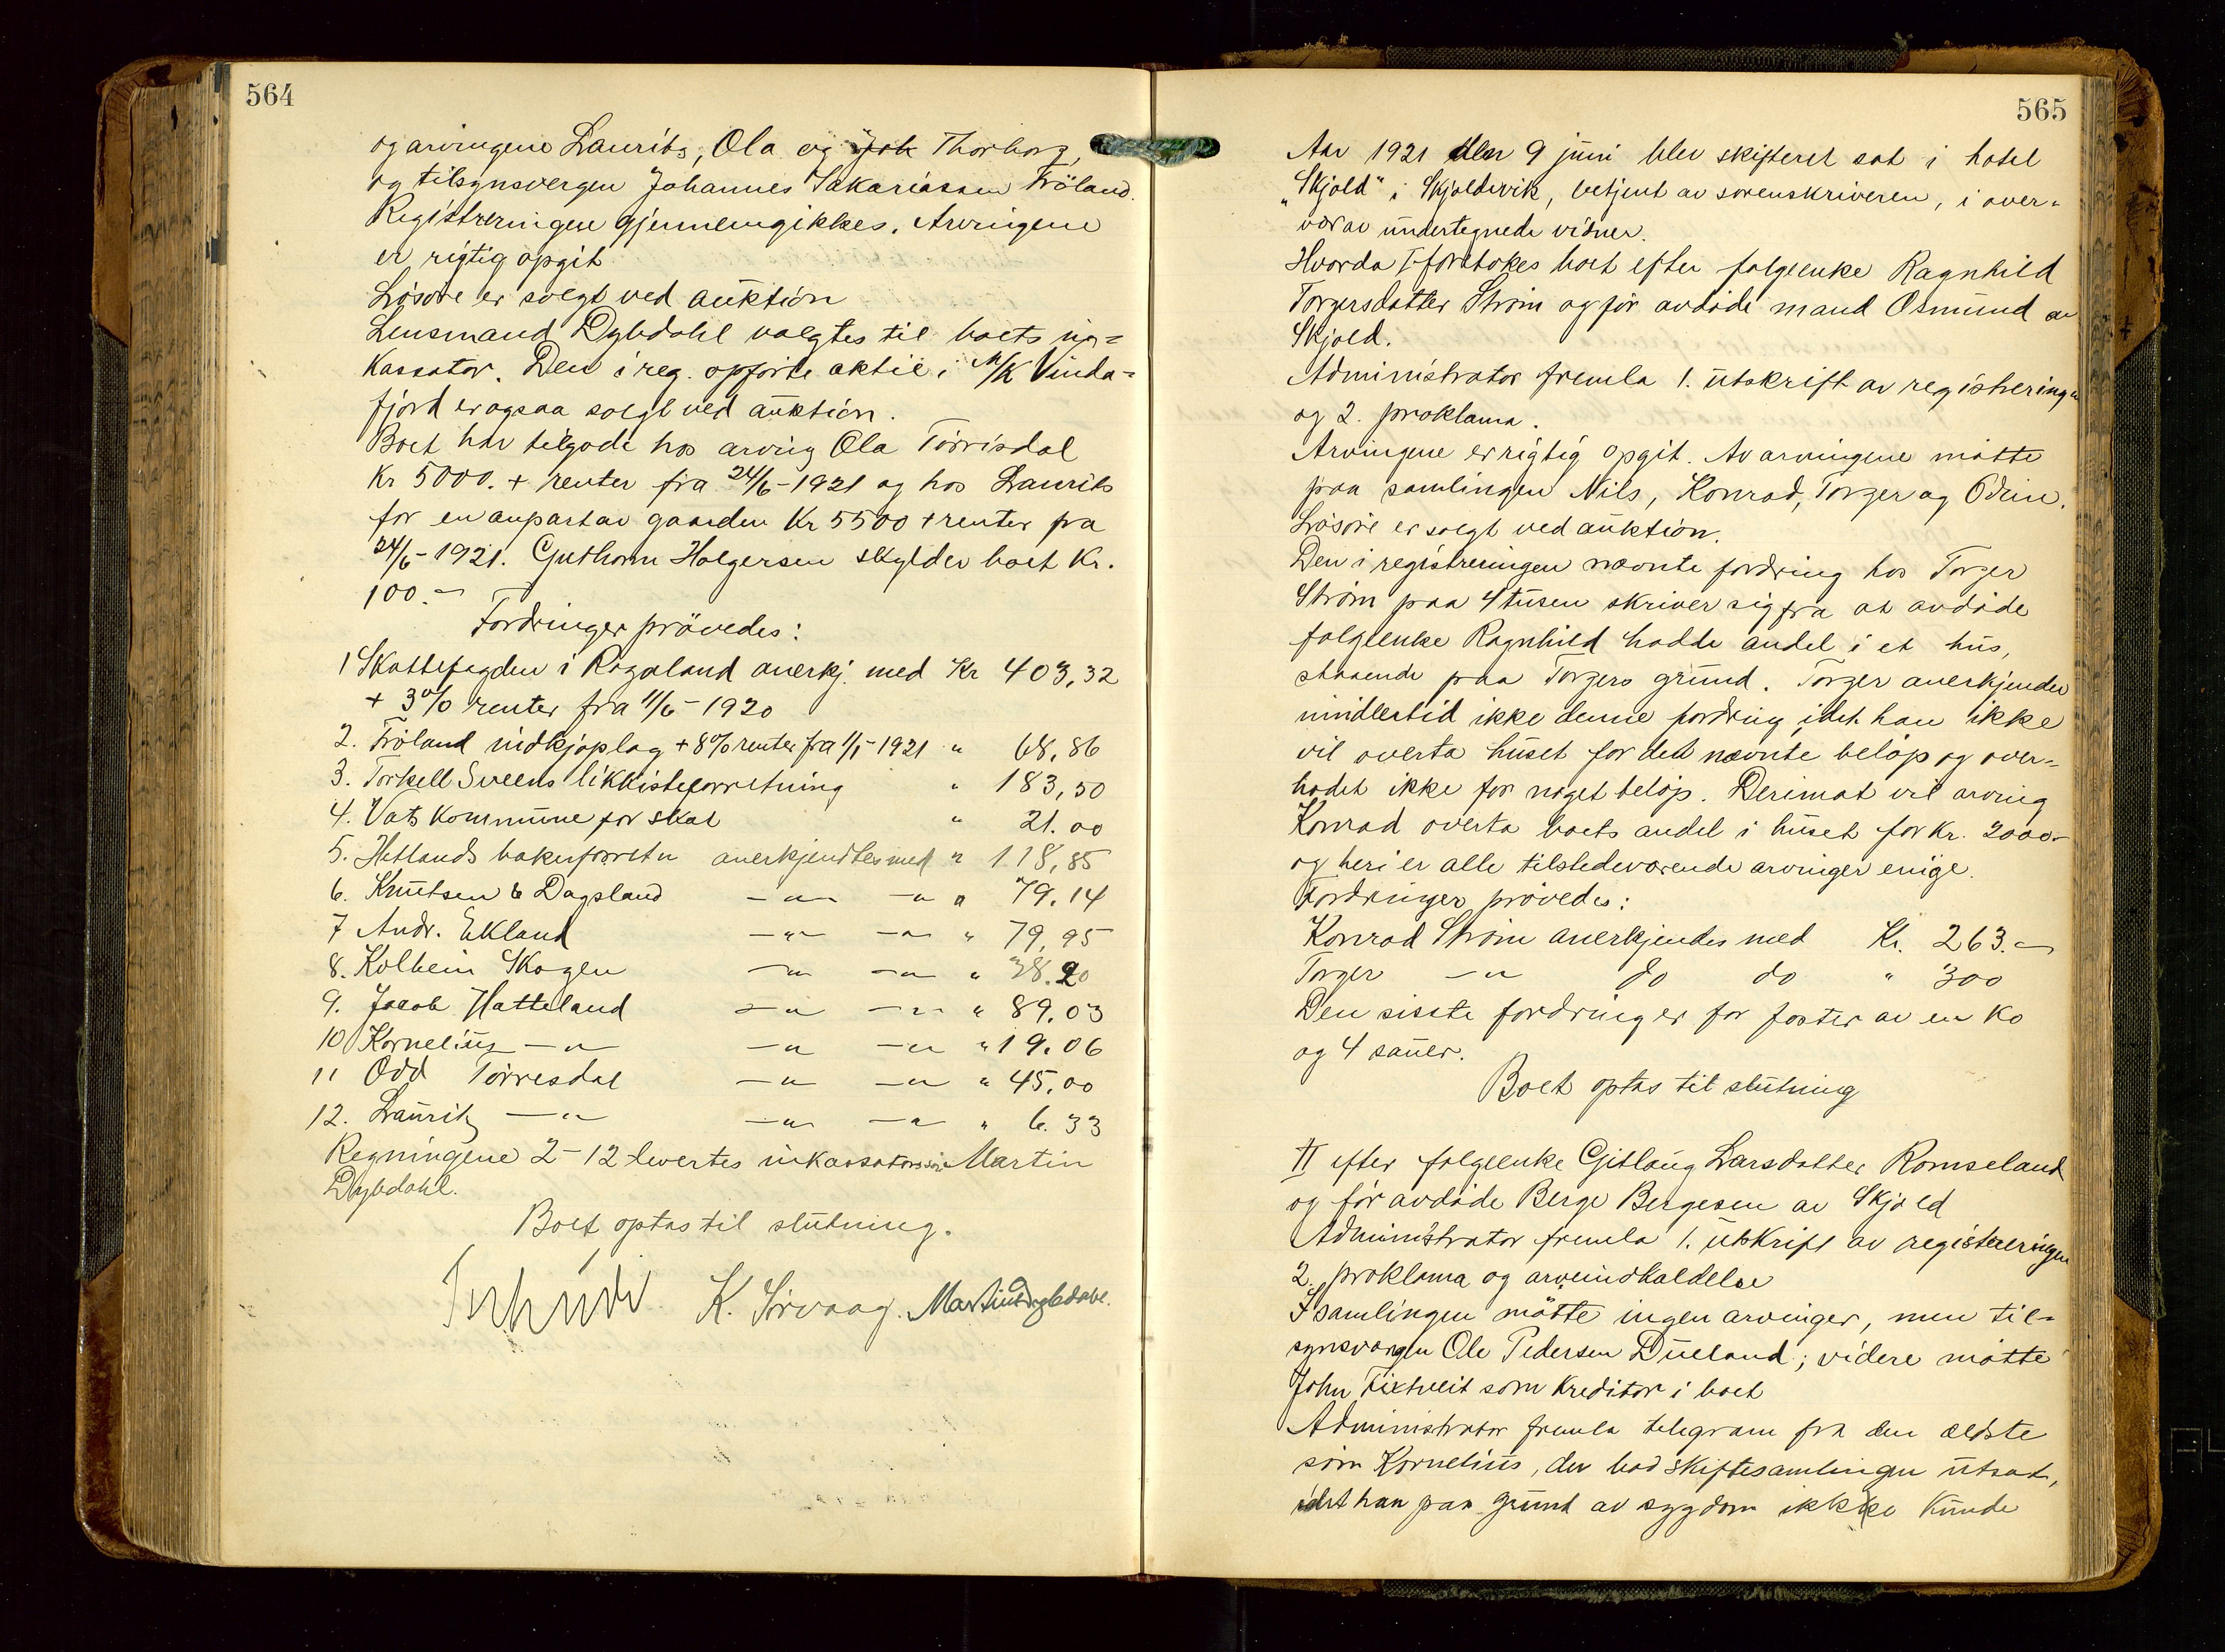 564
og arvingene Laurits, Ola og Joh Thorborg,
og tilsynsvergen Johannes Sakariassen Fröland.
Registreringen gjennemgikkes. Arvingene
er rigtig opgit
Lösöre er solgt ved auktion
Lensmand Dybdahl valgtes til boets in=
kassator. Den i reg. opförte aktie i M/K Vinda=
fjord er ogsaa solgt ved auktion.
Boet har tilgode hos arving Ola Törrisdal
Kr 5000. + renter fra 24/6-1921 og hos Laurits
for en anpart av gaarden Kr 5500 + renter fra
24/6-1921. Guthorm Holgersen skylder boet Kr.
100.-
Fordringer prövedes:
1 Skattefogden i Rogaland anerkj. med Kr 403,32
+ 3% renter fra 11/6-1920
2. Fröland indkjöplag + 8% renter fra 1/1-1921 " 68,86
3. Torkell Sveens likkisteforretning " 183,50
4. Vats kommune for skat " 21.00
5. Hetlands bakerforretn anerkjendtes med " 118,85
6. Knutsen & Dagsland -"- -"- " 79,14
7 Andr. Ekland -"- -"- " 79,95
8. Kolbein Skogen -"- -"- " 38.20
9. Jacob Hatteland -"- -"- " 89,03
10 Kornelius -"- -"- -"- " 19.06
11 Odd Törresdal -"- -"- " 45,00
12. Laurits -"- -"- -"- " 6.33
Regningene 2-12 levertes inkassatoren Martin
Dybdahl.
Boet optas til slutning.
K. Sörvaag. Martin Dybdahl.
565
Aar 1921 den 9 juni blev skifteret sat i hotel
"Skjold" i Skjoldevik, betjent av sorenskriveren, i over=
vær av undertegnede vidner.
Hvorda I foretokes boet efter folgeenke Ragnhild
Torgersdatter Ström og för avdöde mand Osmund av
Skjold.
Administrator fremla 1. utskrift av registreringen
og 2. proklama.
Arvingene er rigtig opgit. Av arvingene mötte
paa samlingen Nils, Konrad, Torger og Odin.
Lösöre er solgt ved auktion.
Den i registreringen nævnte fordring hos Torger
Ström paa 4 tusen skriver sig fra at avdöde
folgeenke Ragnhild hadde andel i et hus,
staaende paa Torgers grund. Torger anerkjender
imidlertid ikke denne fordring, idet han ikke
vil overta huset for det nævnte belöp og over=
hodet ikke for noget belöp. Derimot vil arving
Konrad overta boets andel i huset for Kr. 2000.-
og heri er alle tilstedeværende arvinger enige.
Fordringer prövedes:
Konrad Ström anerkjendes med Kr. 263.-
Torger -"- do do " 300
Den sisste fordring er for foster av en ko
og 4 sauer.
Boet optas til slutning
II efter folgeenke Gitlaug Larsdatter Romseland
og för avdöde Berge Bergesen av Skjold
Administrator fremla 1. utskrift av registreringen
2. proklama og arveindkaldelse
I samlingen mötte ingen arvinger, men til=
synsvergen Ole Pedersen Dueland; videre mötte
John Fixtveit som kreditor i boet
Administrator fremla telegram fra den ældste
sön Kornelius, der bad skiftesamlingen utsat,
idet han paa grund av sygdom ikke kunde